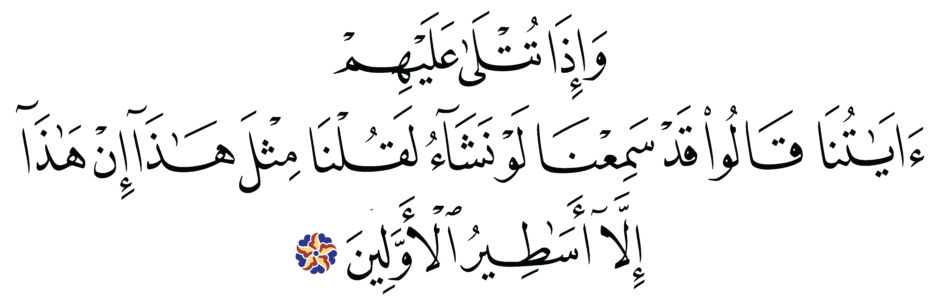 وَإِذَا تُتْلَىٰ عَلَيْهِمْ
ءَايَٰتُنَا قَالُوا۟ قَدْ سَمِعْنَا لَوْ نَشَآءُ لَقُلْنَا مِثْلَ هَٰذَآ إِنْ هَٰذَآ
إِلَّآ أَسَٰطِيرُ ٱلْأَوَّلِينَ